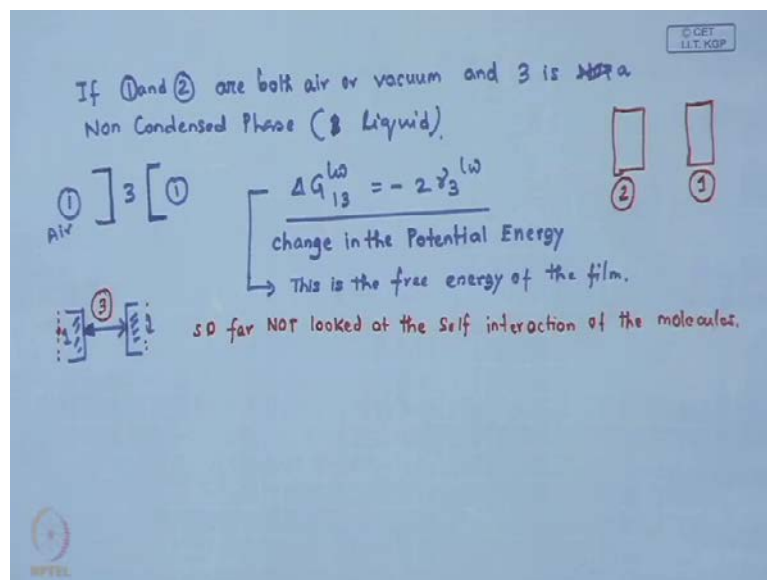 © CET
I.I.T. KGP
If ① and ② are both air or vacuum and 3 is a
Non Condensed Phase ( Liquid).
① ] 3 [ ①
Air
ΔG₁₃ᴸᵂ = - 2 γ₃ᴸᵂ
change in the Potential Energy
→ This is the free energy of the film.
② ①
③
1 2
so far NOT looked at the Self interaction of the molecules.
NPTEL